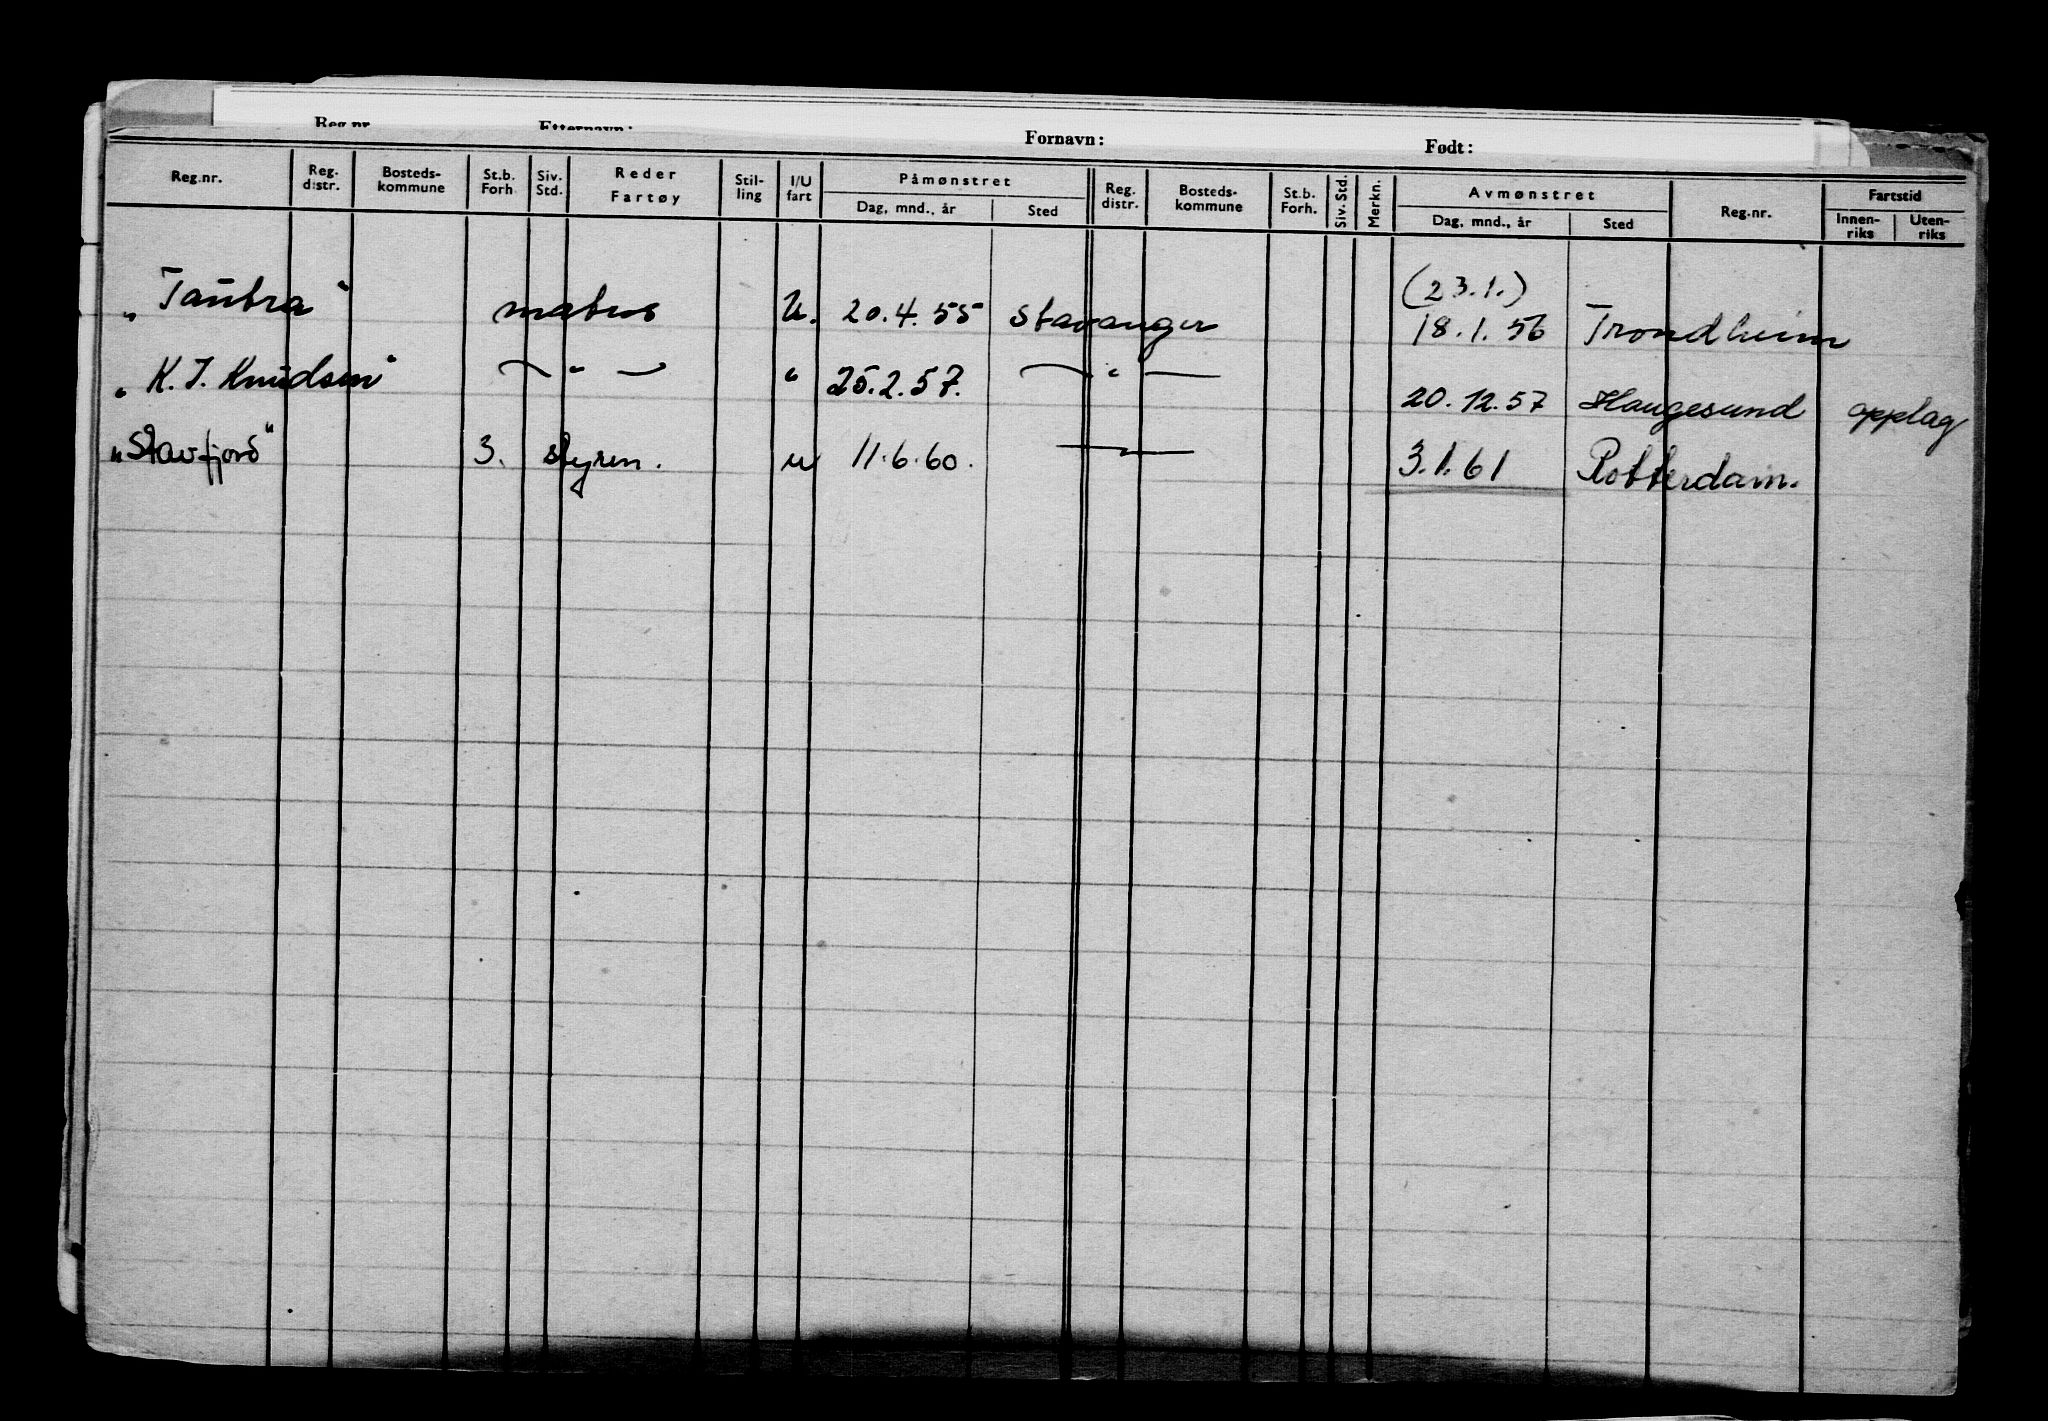 Reg.nr. Etternavn: Fornavn: Født:
Reg.nr. Reg. distr. Bosteds- kommune St.b. Forh. Siv. Std. Reder Fartøy Stil- ling I/U fart Påmønstret Dag, mnd., år Sted Reg. distr. Bosteds- kommune St.b. Forh. Siv. Std. Merkn. Avmønstret Dag, mnd., år Sted Reg.nr. Fartstid Innen- riks Uten- riks
(23.1.)
"Tautra" matros U. 20.4.55 Stavanger 18.1.56 Trondheim
"K. J. Knudsen" — " — " 25.2.57. — " — 20.12.57 Haugesund opplag
"Stavfjord" 3. styrm. u 11.6.60. — " — 3.1.61 Rotterdam.